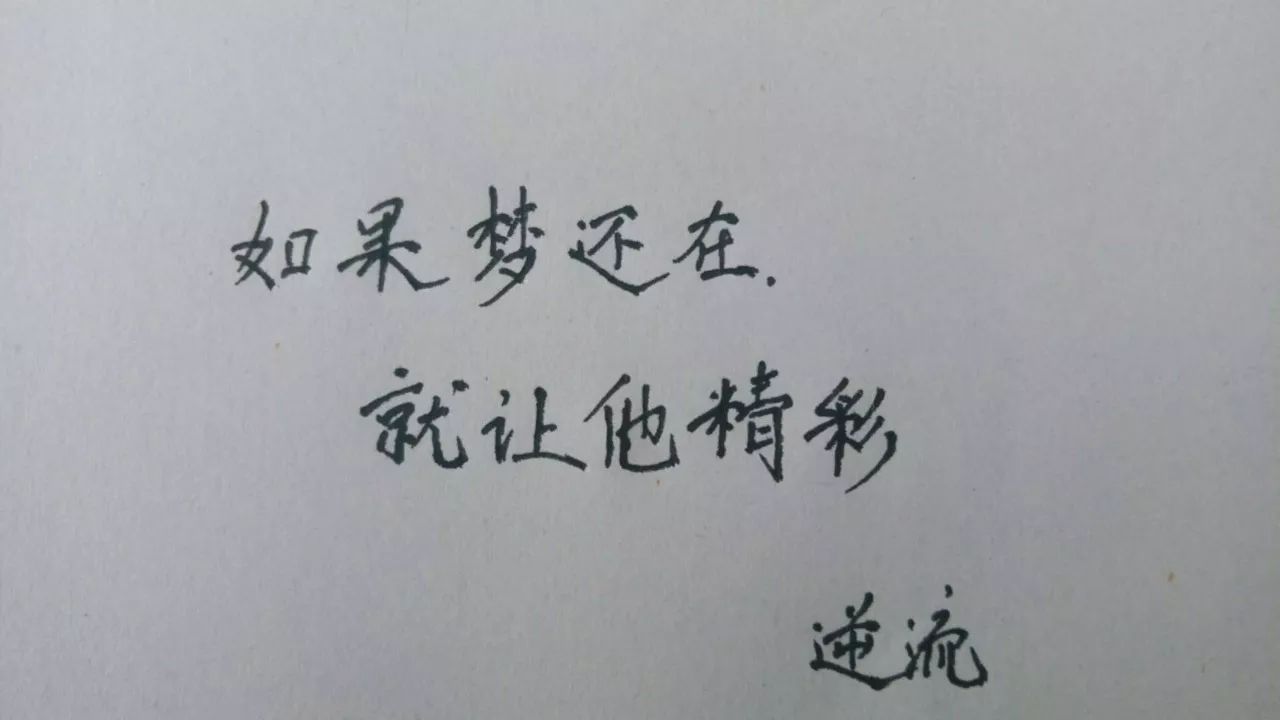 如果梦还在.
就让他精彩
逆流